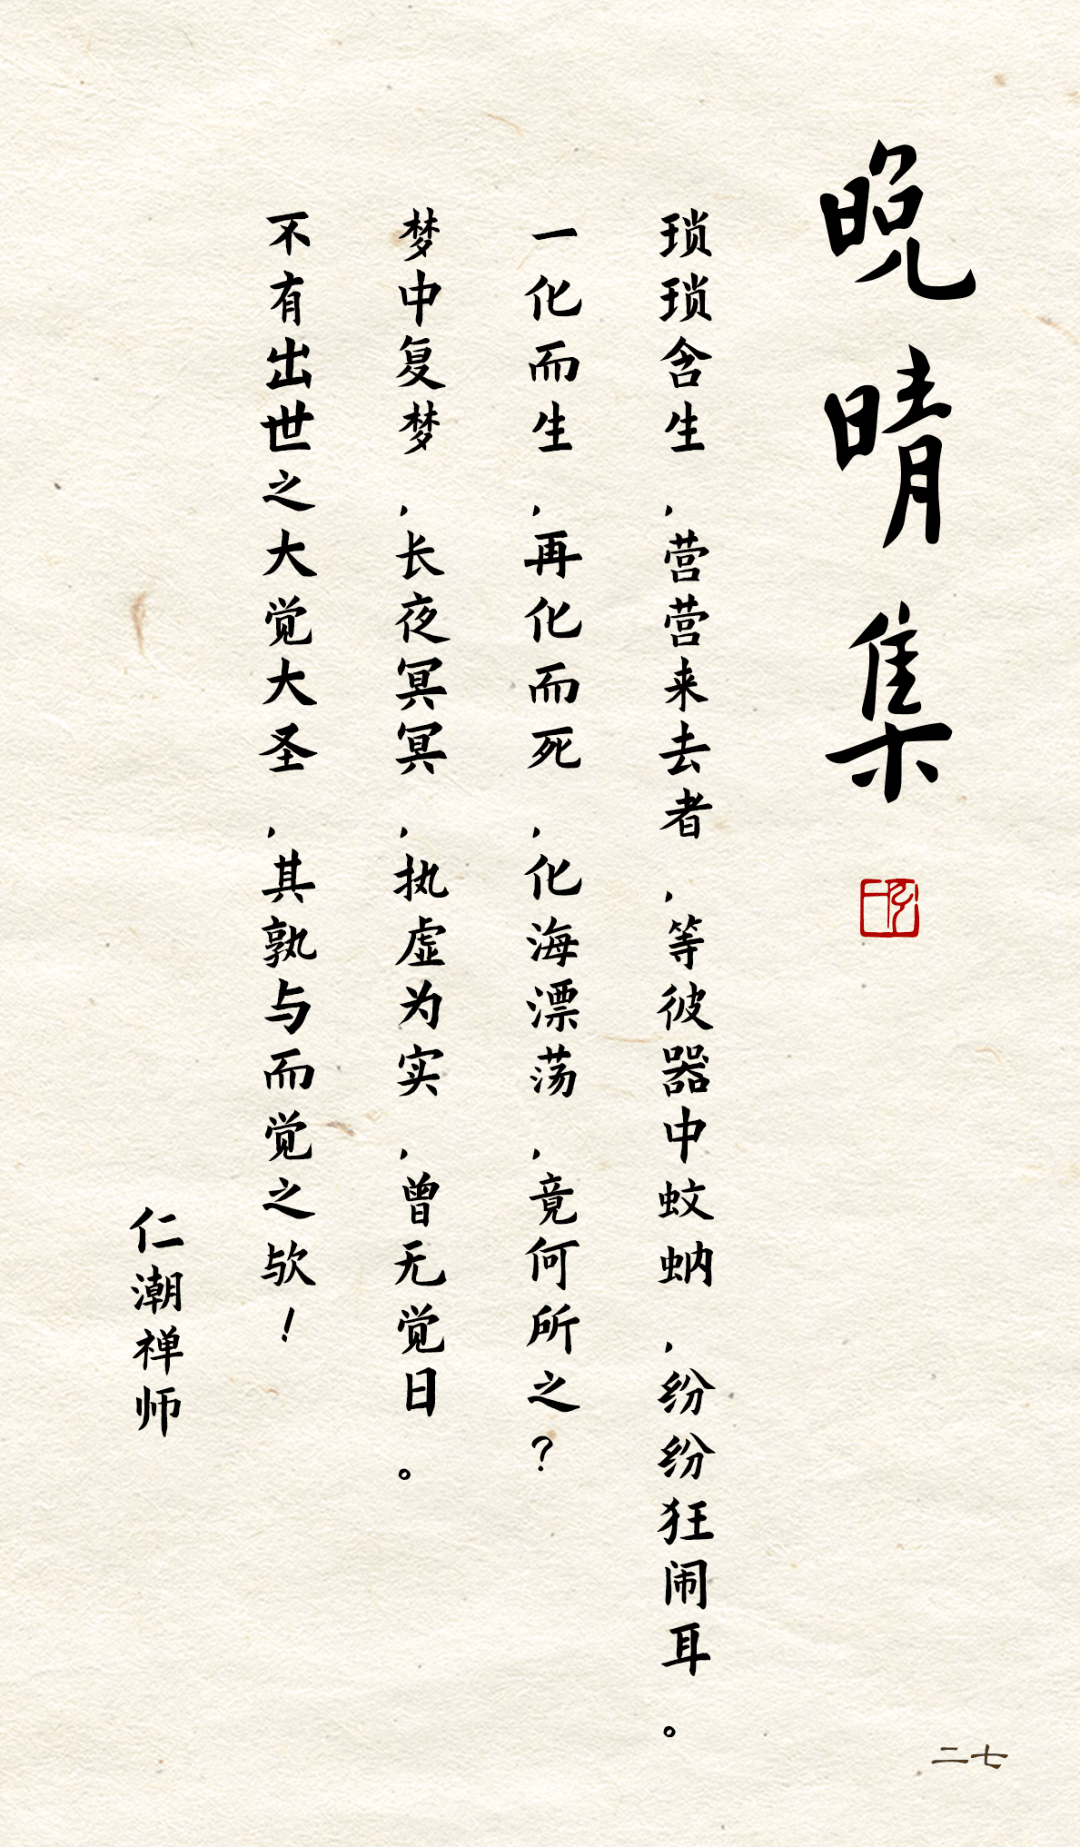 晚晴集
琐琐含生，营营来去者，等彼器中蚊蚋，纷纷狂闹耳。
一化而生，再化而死，化海漂荡，竟何所之？
梦中复梦，长夜冥冥，执虚为实，曾无觉日。
不有出世之大觉大圣，其孰与而觉之欤！
仁潮禅师
二七